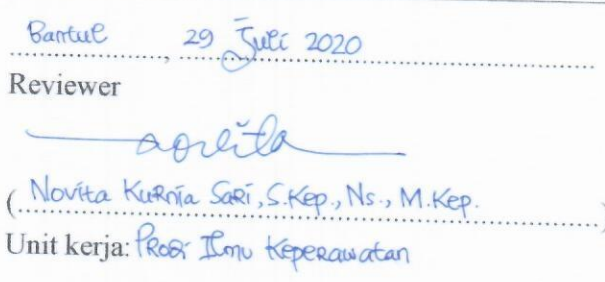 Bantul, 29 Juli 2020
Reviewer
novita
(Novita Kurnia Sari, S.Kep., Ns., M.Kep.)
Unit kerja: Prodi Ilmu Keperawatan